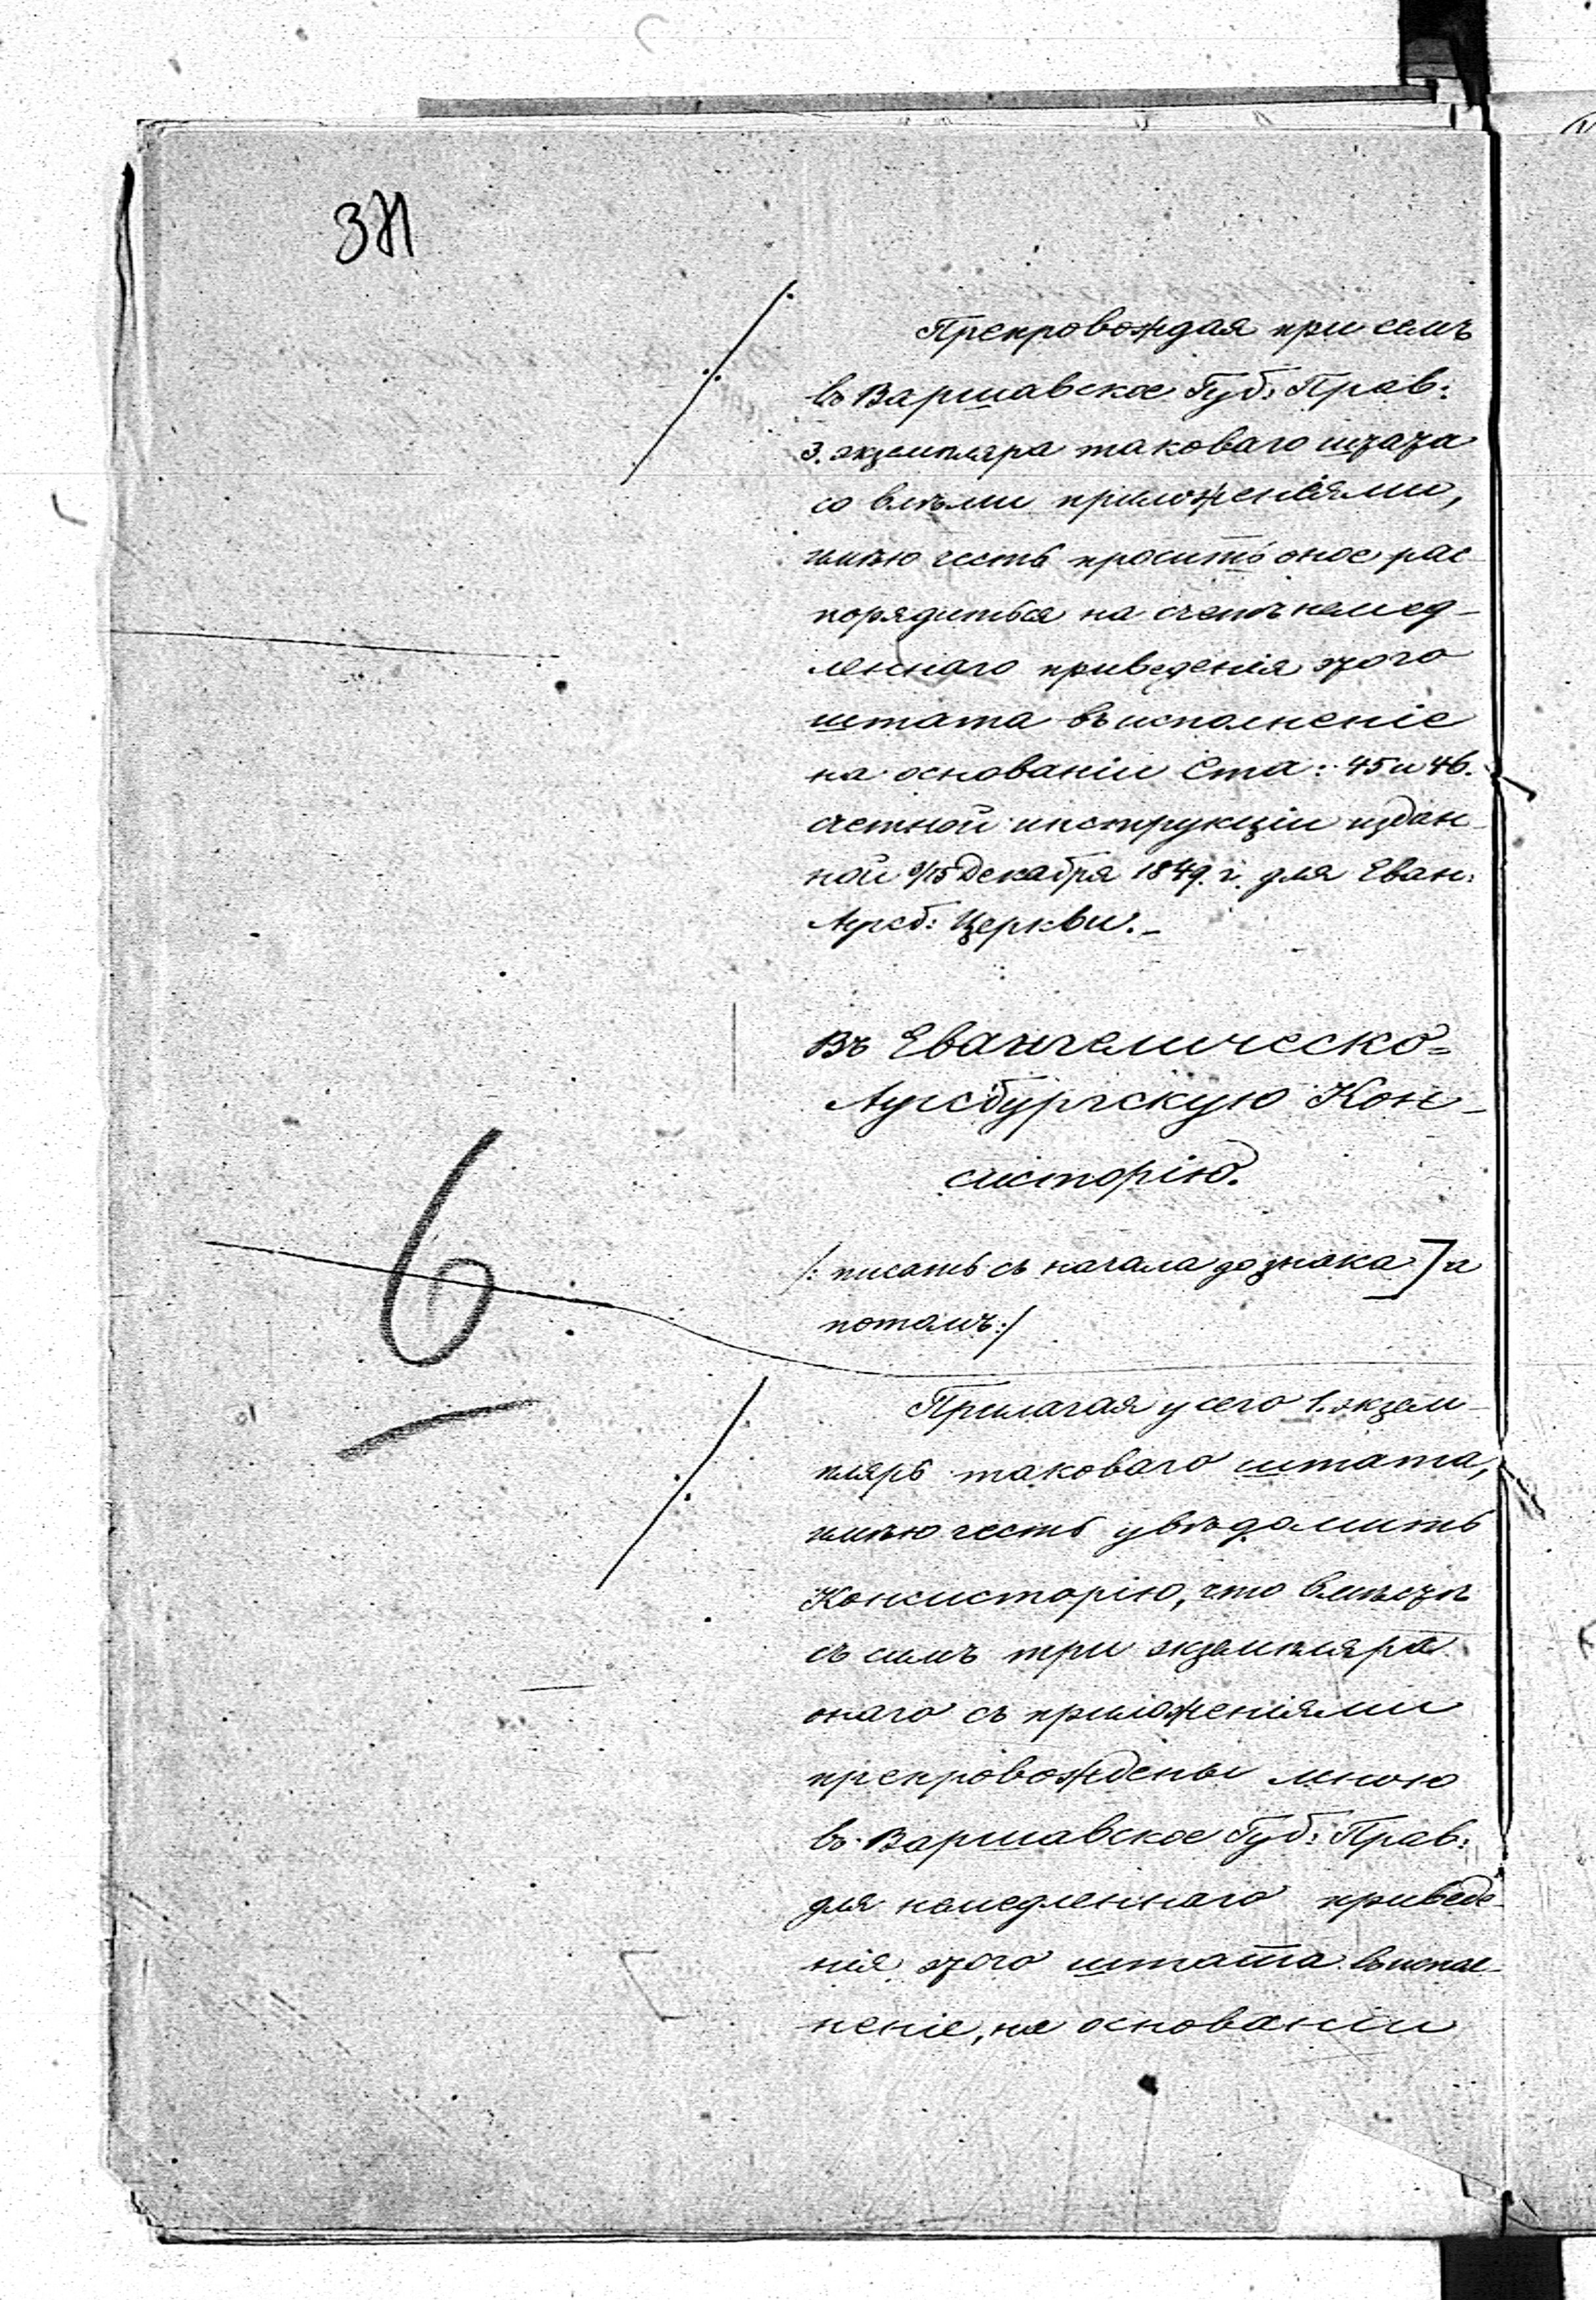 371
Препровождая при семъ
въ Варшавское Губ: Прав:
3. экземпляра таковаго штата
со всѣми приложеніями,
имѣю честь просить оное рас
порядиться на счетъ немед-
леннаго приведенія этого
штата въ исполненіе
на основаніи Ста: 45 и 46.
счетной инструкціи издан-
ной 3/15 Декабря 1849. г. для Еван:
Аугсб: Церкви.-
Въ Евангелическо=
Аугсбургскую Кон-
систорію.
/: писать съ начала до знака ] а
потомъ:/
Прилагая у сего 1. экзем-
пляръ таковаго штата,
имѣю честь увѣдомить
Консисторію, что вмѣстѣ
съ симъ три экземпляра
онаго съ приложеніями
препровождены мною
въ Варшавское Губ: Прав:
для немедленнаго приведе-
нія этого штата въ испол-
неніе, на основаніи
6